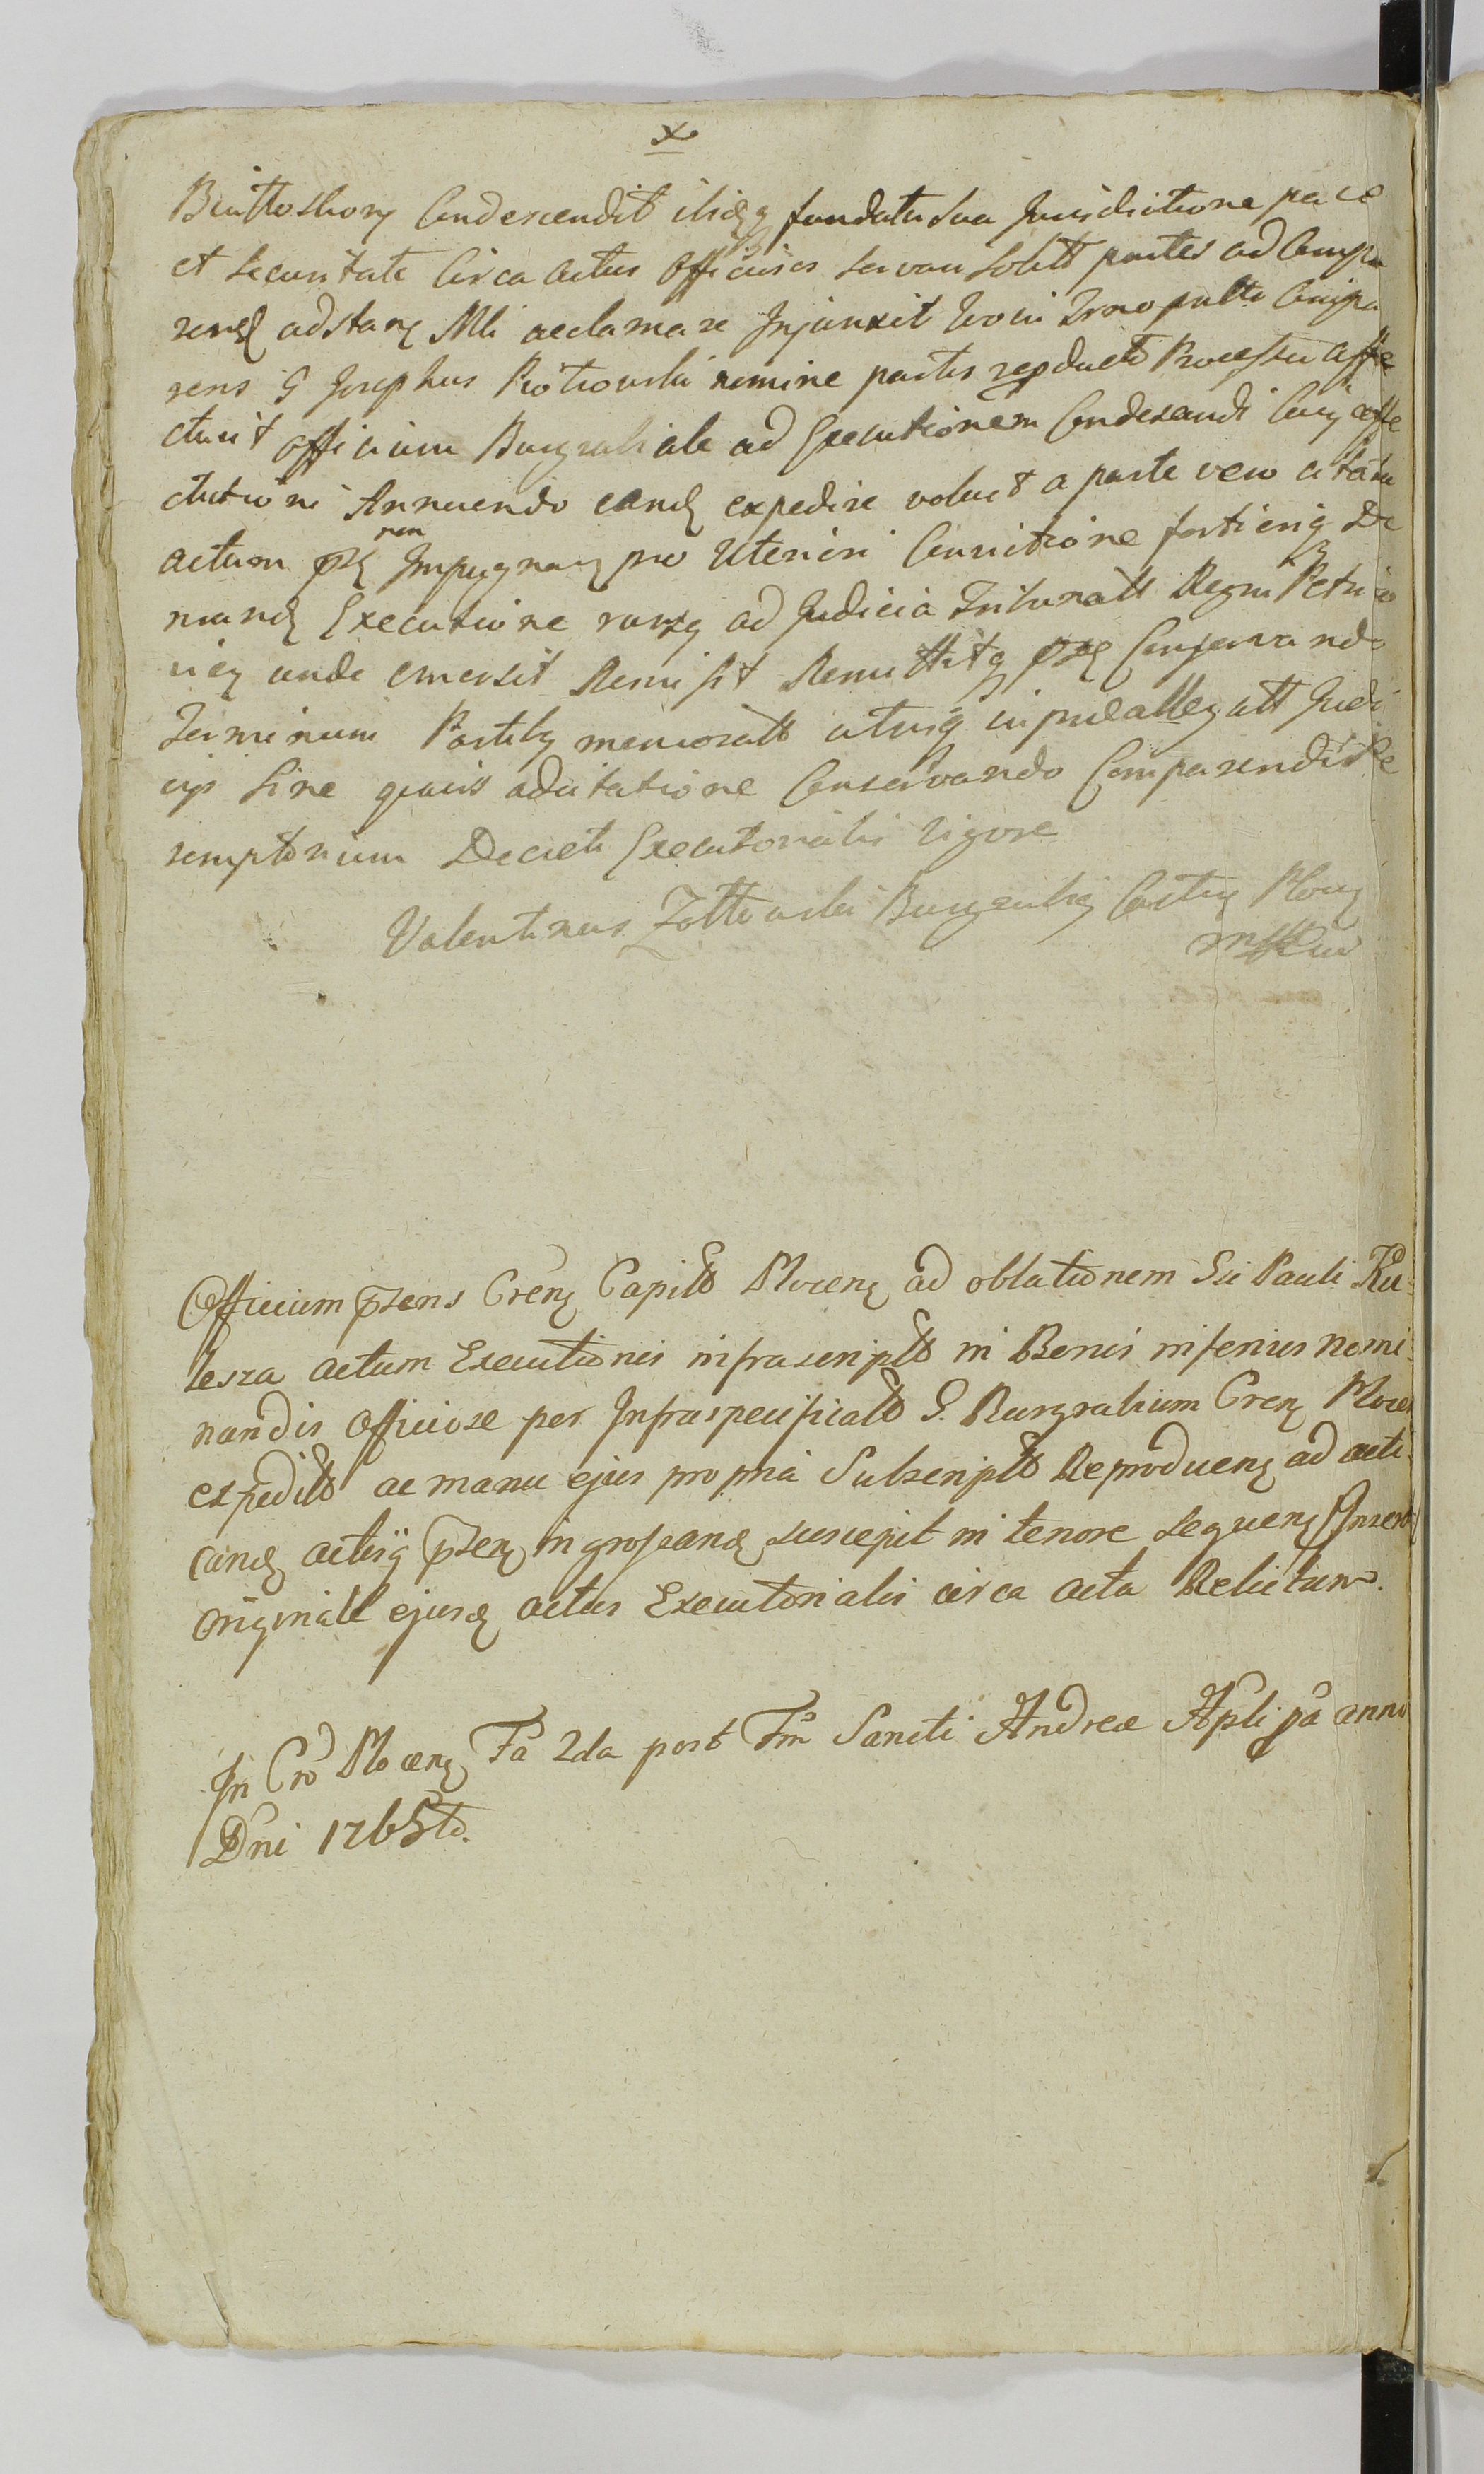 x
Condescendit ibidq fundata sua Jurisdictione pace
et Securitate Circa actus Officiosos servari solitt partes ad Compa
rend adstare Mli acclamare Injunxit Comp
rens G Josephus Piotrowski nomine partis repducto Processu affe
ctavit officium Burgrabiale ad Executionem Condescendi Cuiq affe
ctationi Annuendo eand expedire voluit a parte vero citata
actum psen non Impugnan pro Uteriori Convictione fortioriq De
mand Executione ad Judicia Tribunalt Regni Petrico
vien unde emersit Remisit Remittitq psen Conservando
Terminum Partibq memoratt utrisq in praeallegatt Judi
cijs Sine quavis adcitatione Conservando Comparendi Pe
remptorium Decreti Executorialis vigore
Valentinus Zołtowski Burgrabiq Castrq Plocq
mppria
Officium psens Cren Capitt Plocen ad oblationem Sci Pauli Ku
lesza actum Executionis infrascriptt in Bonis inferius nomi
nandis Officiose per Infraspecificatt G. Burgrabium Cren Plocen
expeditt ac manu ejus propria Subscriptt Reproducen ad acti
cand actisq psen ingrossand suscepit in tenore sequen Insert
originall ejusd actus Executorialis circa acta Relictum.
In Cro Plocen Fa 2da post Fm Sancti Andreæ Apli pa anno
Dni 1765to.